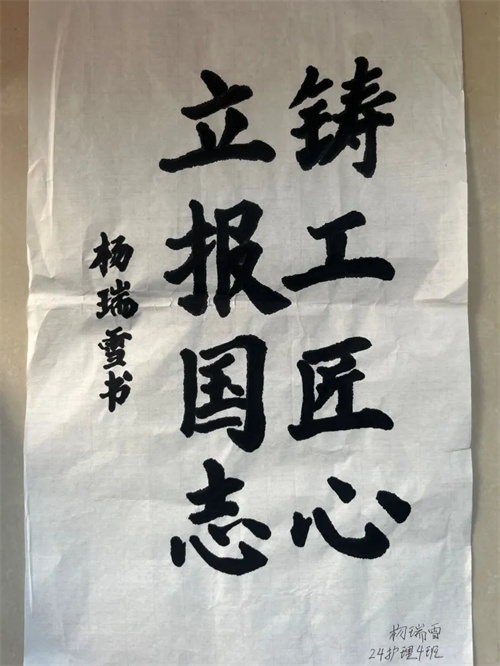 铸工匠心
立报国志
杨瑞雪书
杨瑞雪
24护理4班